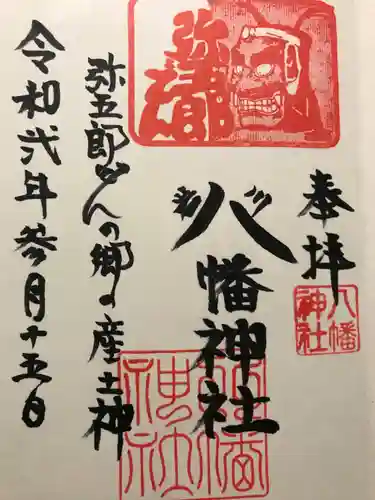 奉拝
八幡神社
八幡神社
弥五郎どんの郷の産土神
令和弐年参月十五日